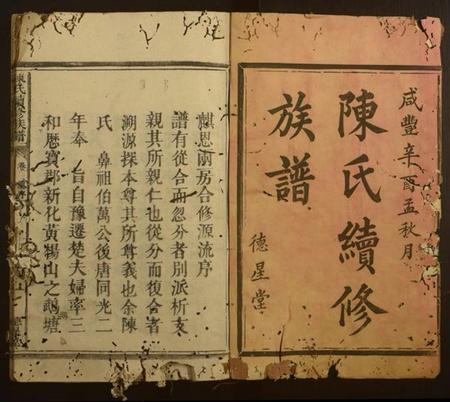 咸豐辛酉孟秋月
陳氏續修
族譜
德星堂
麒恩兩房合修源流序
譜有從合而忽分者別派析支
親其所親仁也從分而復合者
溯源探本尊其所尊義也余陳
氏鼻祖伯萬公後唐同光二
年奉旨自豫遷楚夫婦率三
和曆寶郡新化黃楊山之鵝塘
陳氏續修族譜
卷